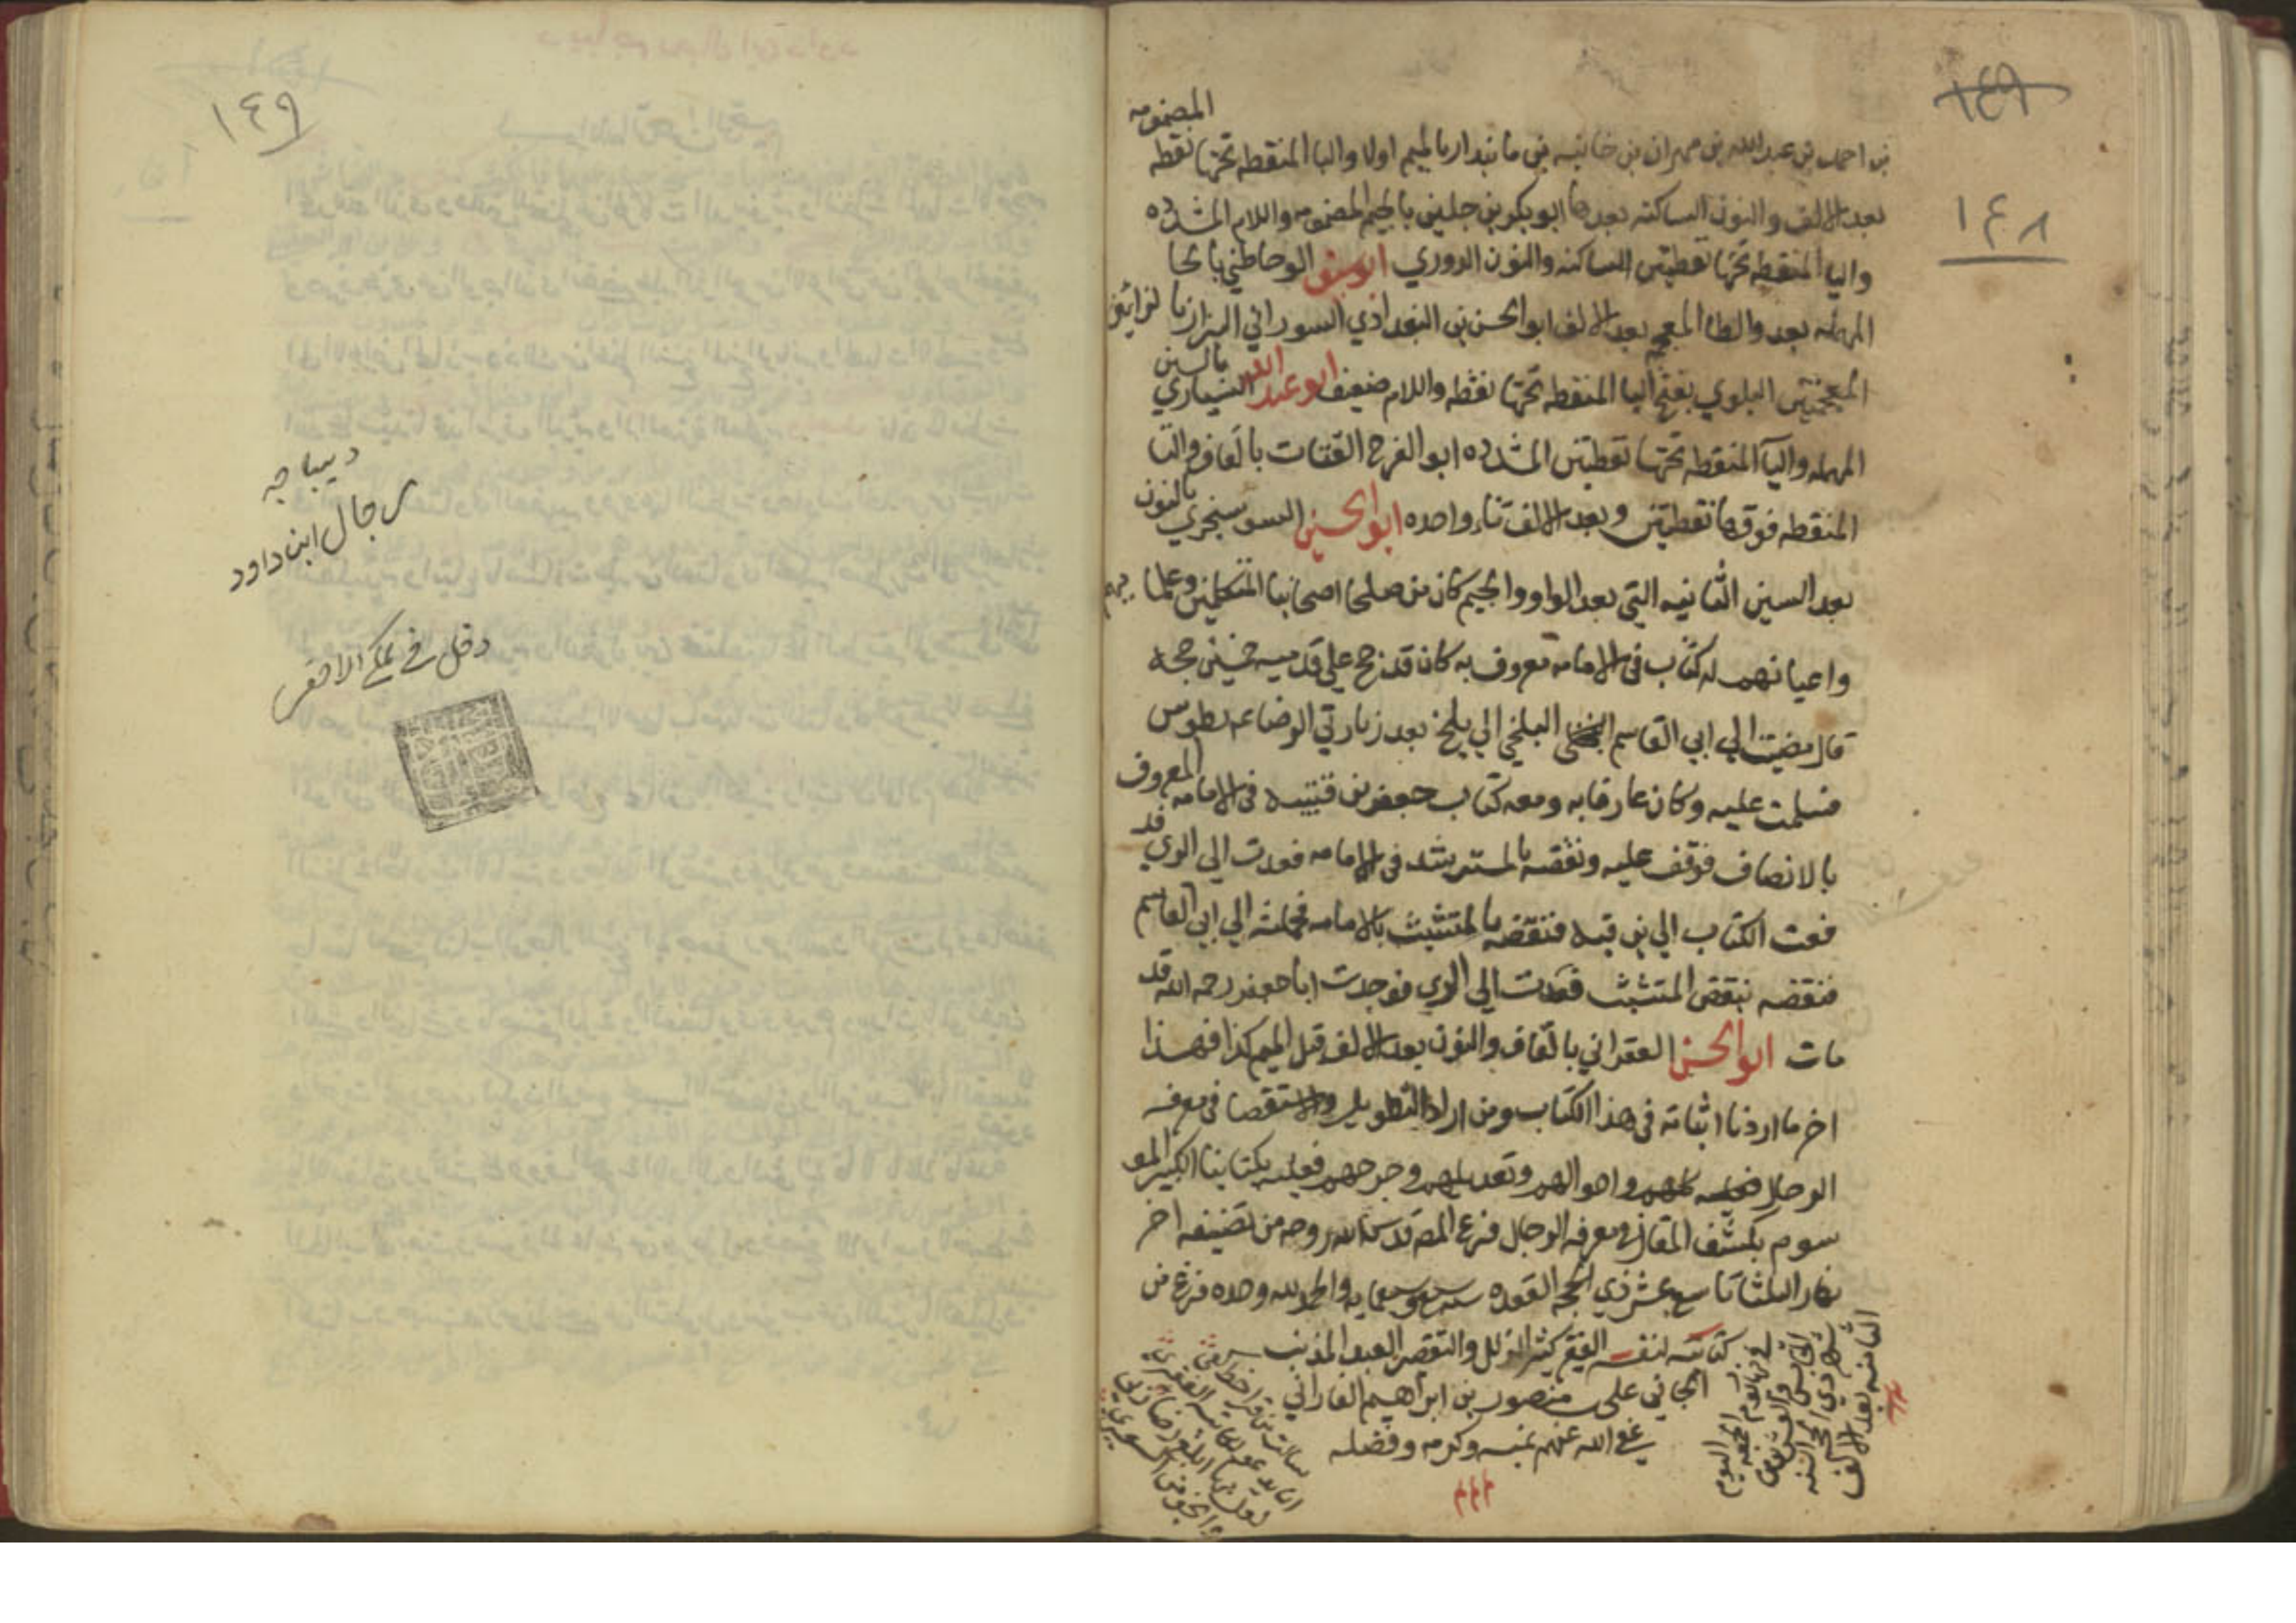 ١٤٩
١٤٨
المضمومه
بن احمد بن عبدالله بن مهران بن خانبه بن ما بندار بالميم اولا والبا المنقطه تحتها نقطه
بعد الالف والنون الساكنه بعدها ابو بكر بن جلين بالجيم المضمومه واللام المشدده
واليا المنقطه تحتها نقطتين الساكنه والنون الدوري ابو يوسف الوحاطي بالحا
المهمله بعد والطا المعجمه بعد الالف ابو الحسن بن البغدادي السوراني البزاز بالزائين
المعجمتين البلوي بفتح البا المنقطه تحتها نقطه واللام ضعيف ابو عبد الله السياري بالسين
المهمله واليا المنقطه تحتها نقطتين المشدده ابو الفرج القتات بالقاف والتا
المنقطه فوقها نقطتين وبعد الالف تاء واحده ابو الحسين السوسنجردي بالنون
بعد السين الثانيه التي بعد الواو والجيم كان من صلحا اصحابنا المتكلمين وعلمايهم
واعيانهم له كتاب في الامامه معروف به كان قد حج علي قدميه خمسين حجه
قال مضيت الي ابي القاسم البلخي الي بلخ بعد زيارتي الرضا عم بطوس
فسلمت عليه وكان عارفا به ومعه كتاب جعفر بن قتيبه في الامامه المعروف
بالانصاف فوقف عليه ونقضه بالمسترشد في الامامه فعدت الي الري قد
فعت الكتاب الي بن قبه فنقضه بالمتثبت بالامامه فحملته الي ابي القاسم
فنقضه بنقض المتثبت فعدت الي الري فوجدت ابا جعفر رحمه الله قد
مات ابو الحسن العقراني بالقاف والنون بعد الالف قبل الميم كذا فهذا
اخر ما اردنا اثباته في هذا الكتاب ومن اراد التطويل والاستقصا في معرفه
الرجال واحوالهم وتعديلهم وجرحهم فعليه بكتابنا الكبير المو
سوم بكشف المقال في معرفه الرجال فرغ المص قدس الله روحه من تصنيفه اخر
نهار الثلثا تاسع عشر ذي الحجه القعده سنه وسبعمايه والحمد لله وحده فرغ من
كتابته لنفسه الفقير كثير الزلل والتقصير العبد المذنب
الجاني علي منصور بن ابراهيم الفاراني
عفي الله عنهم بمنه وكرمه وفضله
في نهار يوم الجمعه اليوم
والعشرين من
شهر ذي الحجه السنه
الثامنه بعد الالف
سالت من قرا خطي
١٤٩
ديباجه
رجال ابن داود
دخل في ملك الاحقر